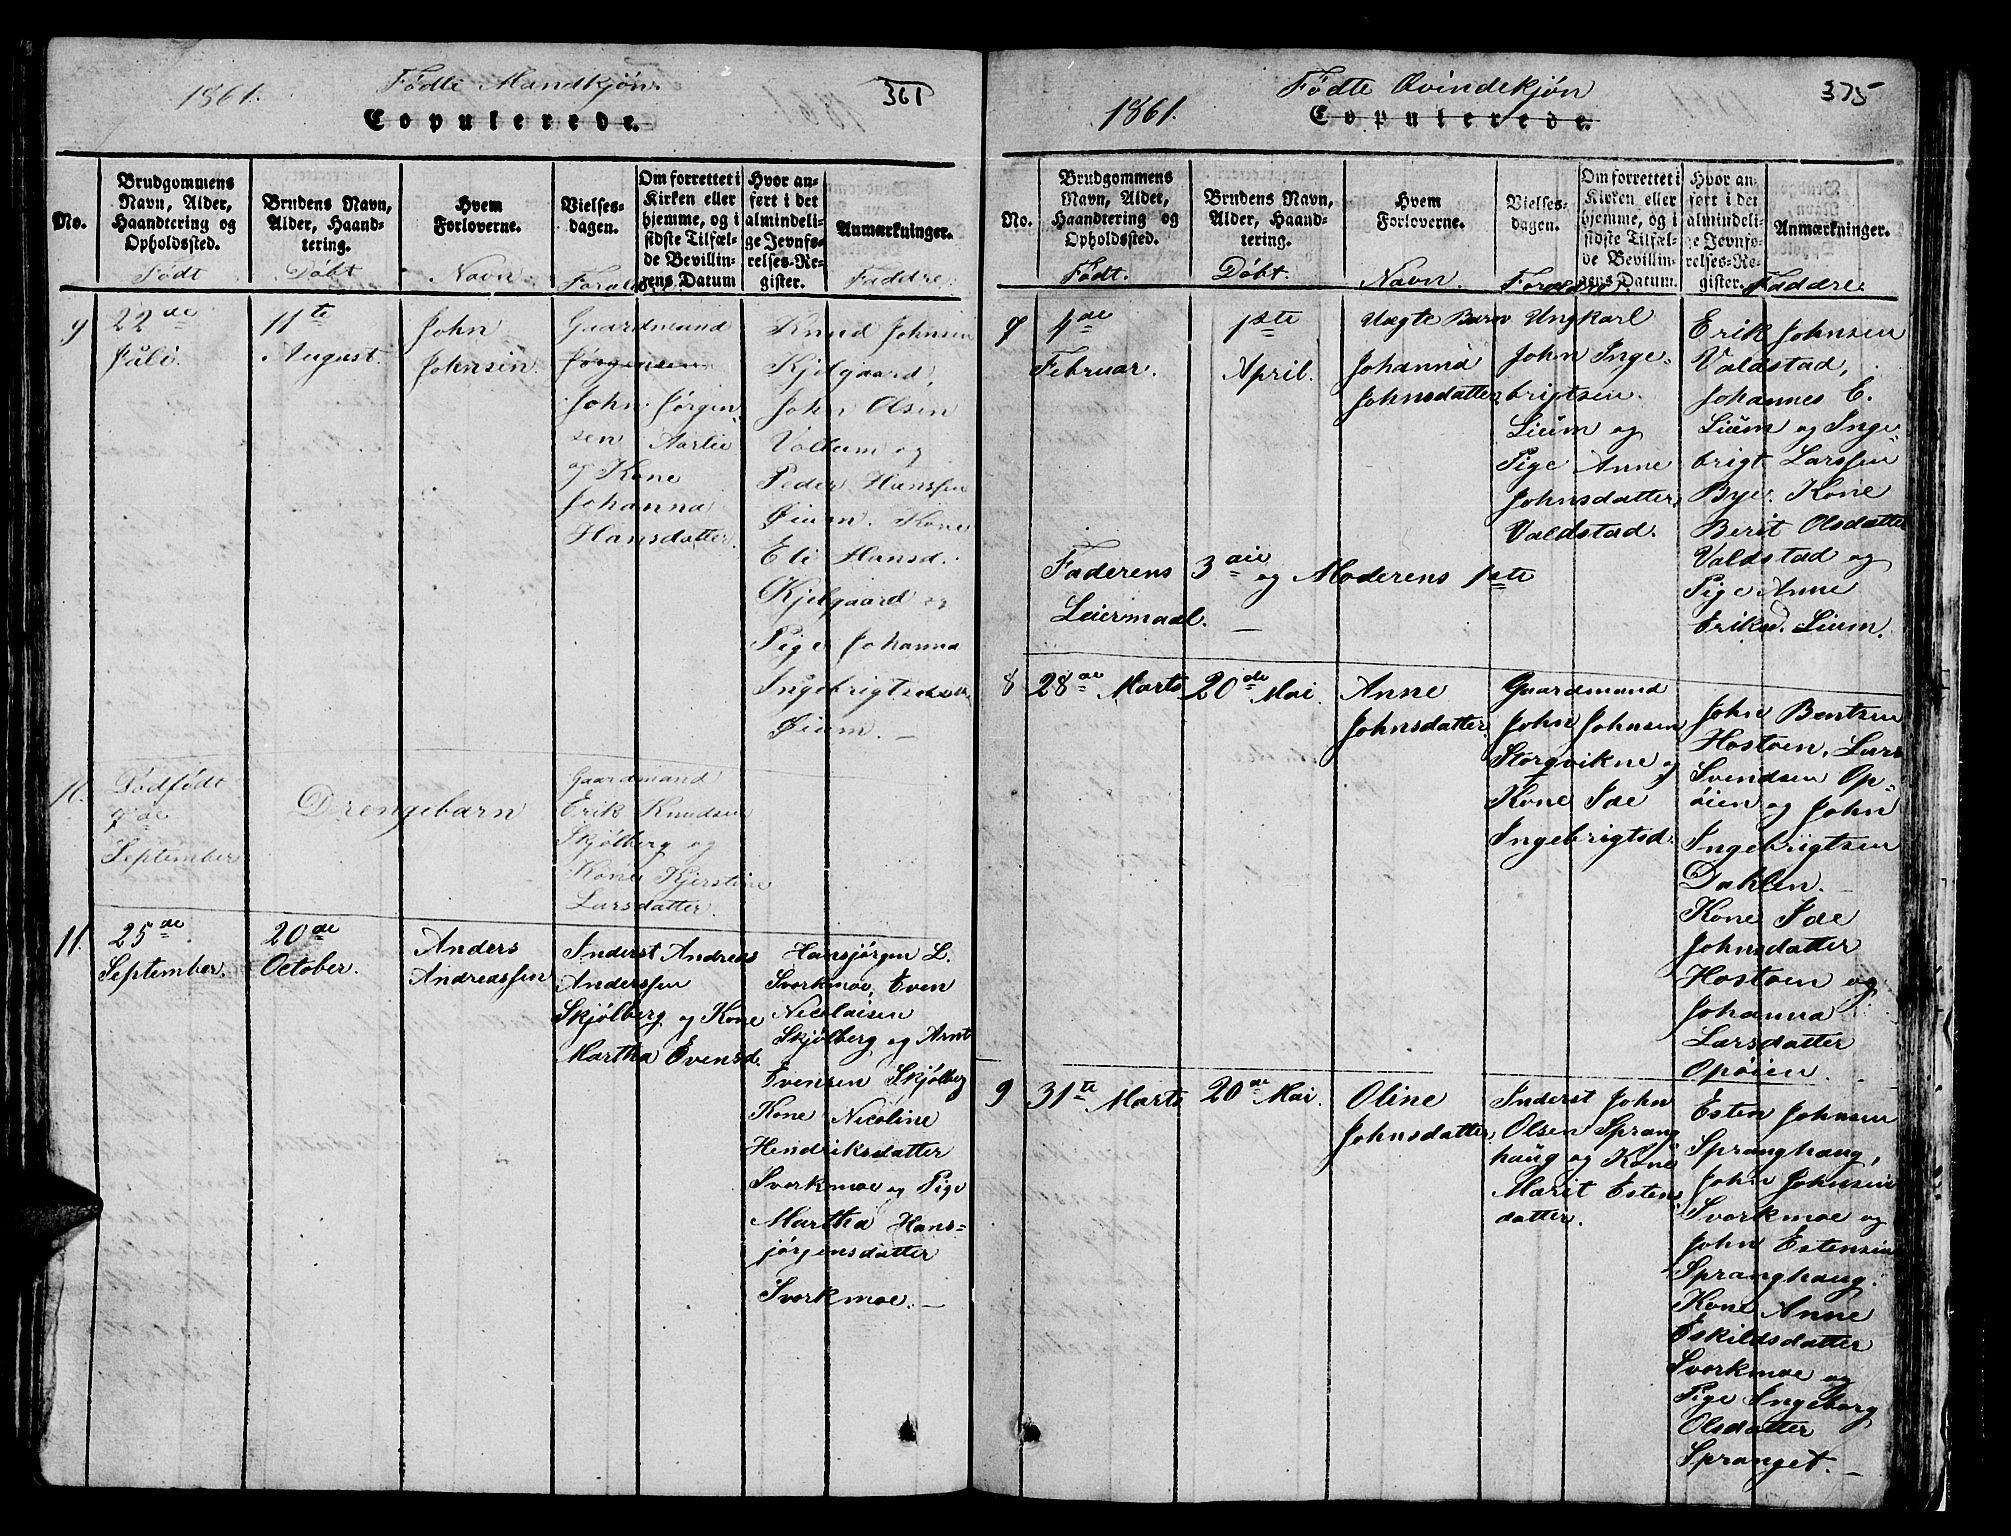 1861. Fødte Mandkjøn. 361
Copulerede.
No.
Brudgommens Navn, Alder, Haandtering og Opholdssted.
Brudens Navn, Alder, Haandtering.
Hvem Forloverne.
Vielsesdagen.
Om forrettet i Kirken eller hjemme, og i sidste Tilfælde Bevillingens Datum
Hvor anført i det almindelige Jevnførelses-Register.
Anmærkninger.
Født
Døbt
Navn
Faddre
9
22de
Juli.
11te
August.
John
Johnsen.
Gaardmand
Jørgensen
John Jørgen
sen Aarlie
og Kone
Johanna
Hansdatter.
Knud Johnsen
Kjelgaard,
John Olsen
Vollum og
Peder Hanssen
Øium. Kone
Eli Hansd.
Kjelgaard og
Pige Johanna
Øium. —
10.
Dødfødt
September
Drengebarn
Gaardmand
Erik Knudsen
Skjølberg og
Kone Kjerstine
Larsdatter.
11.
25de
September.
20de
October.
Anders
Andreassen
Inderst Andreas
Anderssen
Skjølberg og Kone
Martha Evensd.
Hansjørgen L.
Svorkmoe, Even
Nicolaisen
Skjølberg og Arnt
Evensen Skjølberg
Kone Nicoline
Hendriksdatter
Svorkmoe og Pige
Martha Hans=
jørgensdatter
Svorkmoe. —
1861. Fødte Qvindekjøn 375
Copulerede.
No.
Brudgommens Navn, Alder, Haandtering og Opholdssted.
Brudens Navn, Alder, Haandtering.
Hvem Forloverne.
Vielsesdagen.
Om forrettet i Kirken eller hjemme, og i sidste Tilfælde Bevillingens Datum.
Hvor anført i det almindelige Jevnførelses-Register.
Anmærkninger.
Født.
Døbt.
Navn.
Faddre.
7
4de
Februar.
1ste
April.
Uægte Barn
Johanna
Johnsdatter.
Ungkarl
John Inge=
brigtsen
Lium og
Pige Anne
Johnsdatter
Valdstad.
Erik Johnsen
Valdstad,
Johannes E.
Lium og Inge=
brigt Larssen
Bye. Kone
Berit Olsdatter
Valdstad og
Pige Anne
Eriksd. Lium.
Faderens 3die og Moderens 1ste
Leiermaal. —
8
28de Marts
20de Mai.
Anne
Johnsdatter
Gaardmand
John Johnsen
Storqvikne og
Kone Ide
Ingebrigtsd.
John Bentsen
Hostoen, Lars
Svendsen Op=
øien og John
Ingebrigtsen
Dahlen. —
Kone Ide
Johnsdatter
Hostoen og
Johanna
Larsdatter
Opøien.
9
31te Marts
20de Mai.
Oline
Johnsdatter
Inderst John
Olsen Sprang
haug og Kone
Marit Estens
datter.
Esten Johnsen
Spranghaug,
John Johnsen
Svorkmoe og
John Estensen
Spranghaug.
Kone Anne
Eskildsdatter
Svorkmoe og
Pige Ingeborg
Olsdatter
Spranget. —